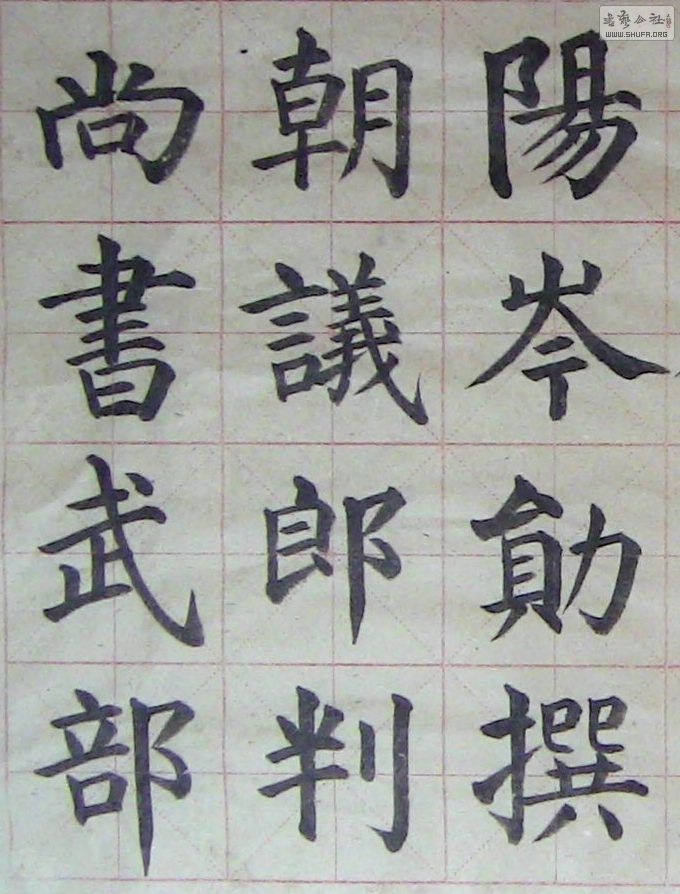 陽岑勛撰
朝議郎判
尚書武部
書藝公社
WWW.SHUFA.ORG